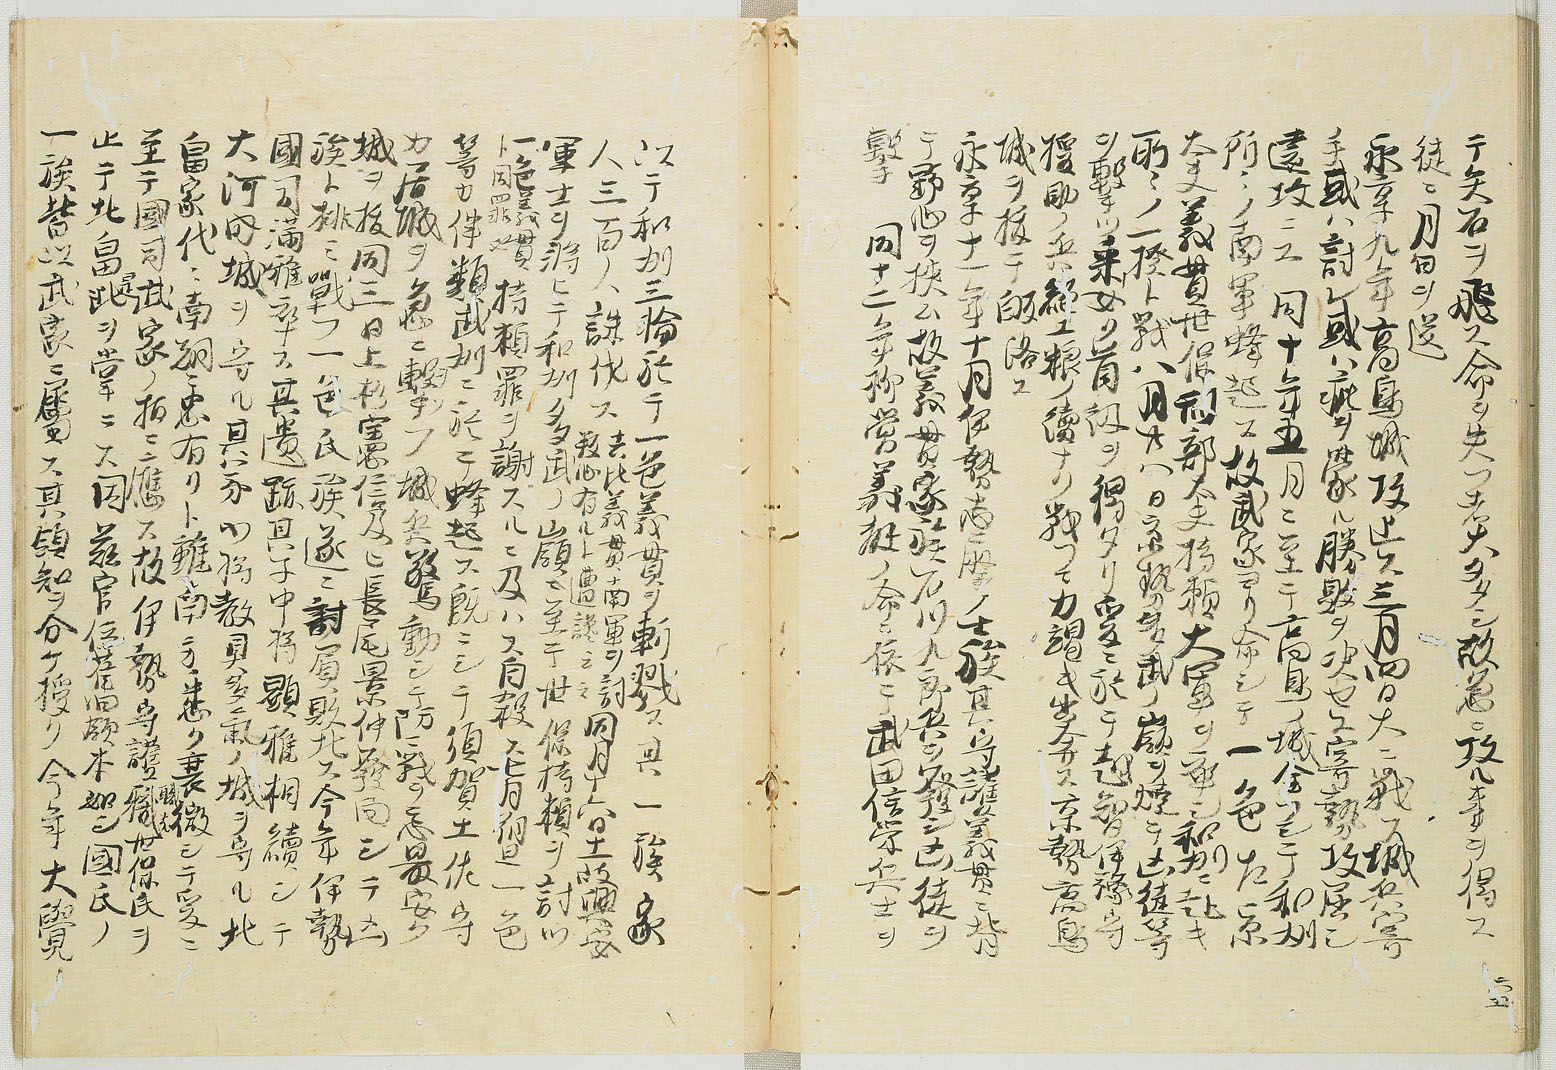 テ矢石ヲ飛ス命ヲ失フ者大タ多シ故急ニ攻ル事ヲ得ス
徒ニ月日ヲ送
永享九年高鳥城攻止ス三月四日大ニ戦フ城兵寄
手或ハ討レ或ハ疵ヲ蒙ル勝敗ヲ決セス寄勢攻屈シ
遠攻ニス同十年五月ニ至テ高鳥ノ城全フシテ和州
所々ノ南軍蜂起ス故武家ヨリ命シテ一色左京
大夫義貫世保刑部大夫持頼大軍ヲ率シ和州ニ赴キ
所々ノ一揆ト戦八月廿八日京勢多武ノ嶺ヲ焼テ凶徒等
ヲ撃ツ東西ヨリ首級ヲ得タリ爰ニ於テ越智伊豫守
援助ノ兵絶エ粮ノ續ナク戦フテ力竭キ出奔ス京勢高鳥
城ヲ抜テ皈洛ス
永享十一年十月伊勢志摩ノ士族其守護義貫ニ背
テ野心ヲ挾ム故義貫家臣石川九郎兵ヲ發シ凶徒ヲ
撃　同十二年柳営義教ノ命ニ依テ武田信栄兵士ヲ
以テ和州三輪於テ一色義貫ヲ斬戮ス其一族家
人三百人誅伐ス去比義貫南軍ヲ討叛心有ルト遭讒之之同月十六日土岐興安
軍士ヲ将ヒテ和州多武ノ嶺ニ至テ世保持頼ヲ討ツ
一色義貫ト同罪也持頼罪ヲ謝スルニ及ハス自殺ス七月朔日一色
等カ伴類武州ニ於テ蜂起ス既ニシテ須賀土佐守
カ居城ヲ急ニ撃ツ城兵驚動シテ防戦ヲ忘最安ク
城ヲ抜同三日上杉憲仁及ヒ長尾景仲發向シテ凶
族ト挑ミ戰フ一色氏族遂ニ討屓敗北ス今年伊勢
國司満雅卒ス其遺跡其子中将顕雅相續シテ
大河内城ヲ守ル其弟少将教具多氣ノ城ヲ守ル北
畠家代々南朝ニ忠有リト雖南方悉ク衰微シテ爰ニ
至テ國司武家ノ招ニ應ス故伊勢守護職世保氏ヲ
止テ北畠是ヲ掌ニス因茲官位舊領本如シ國民ノ
一族皆以武家ニ属ス其領知ヲ分ケ授リ今年大覺ノ
二五